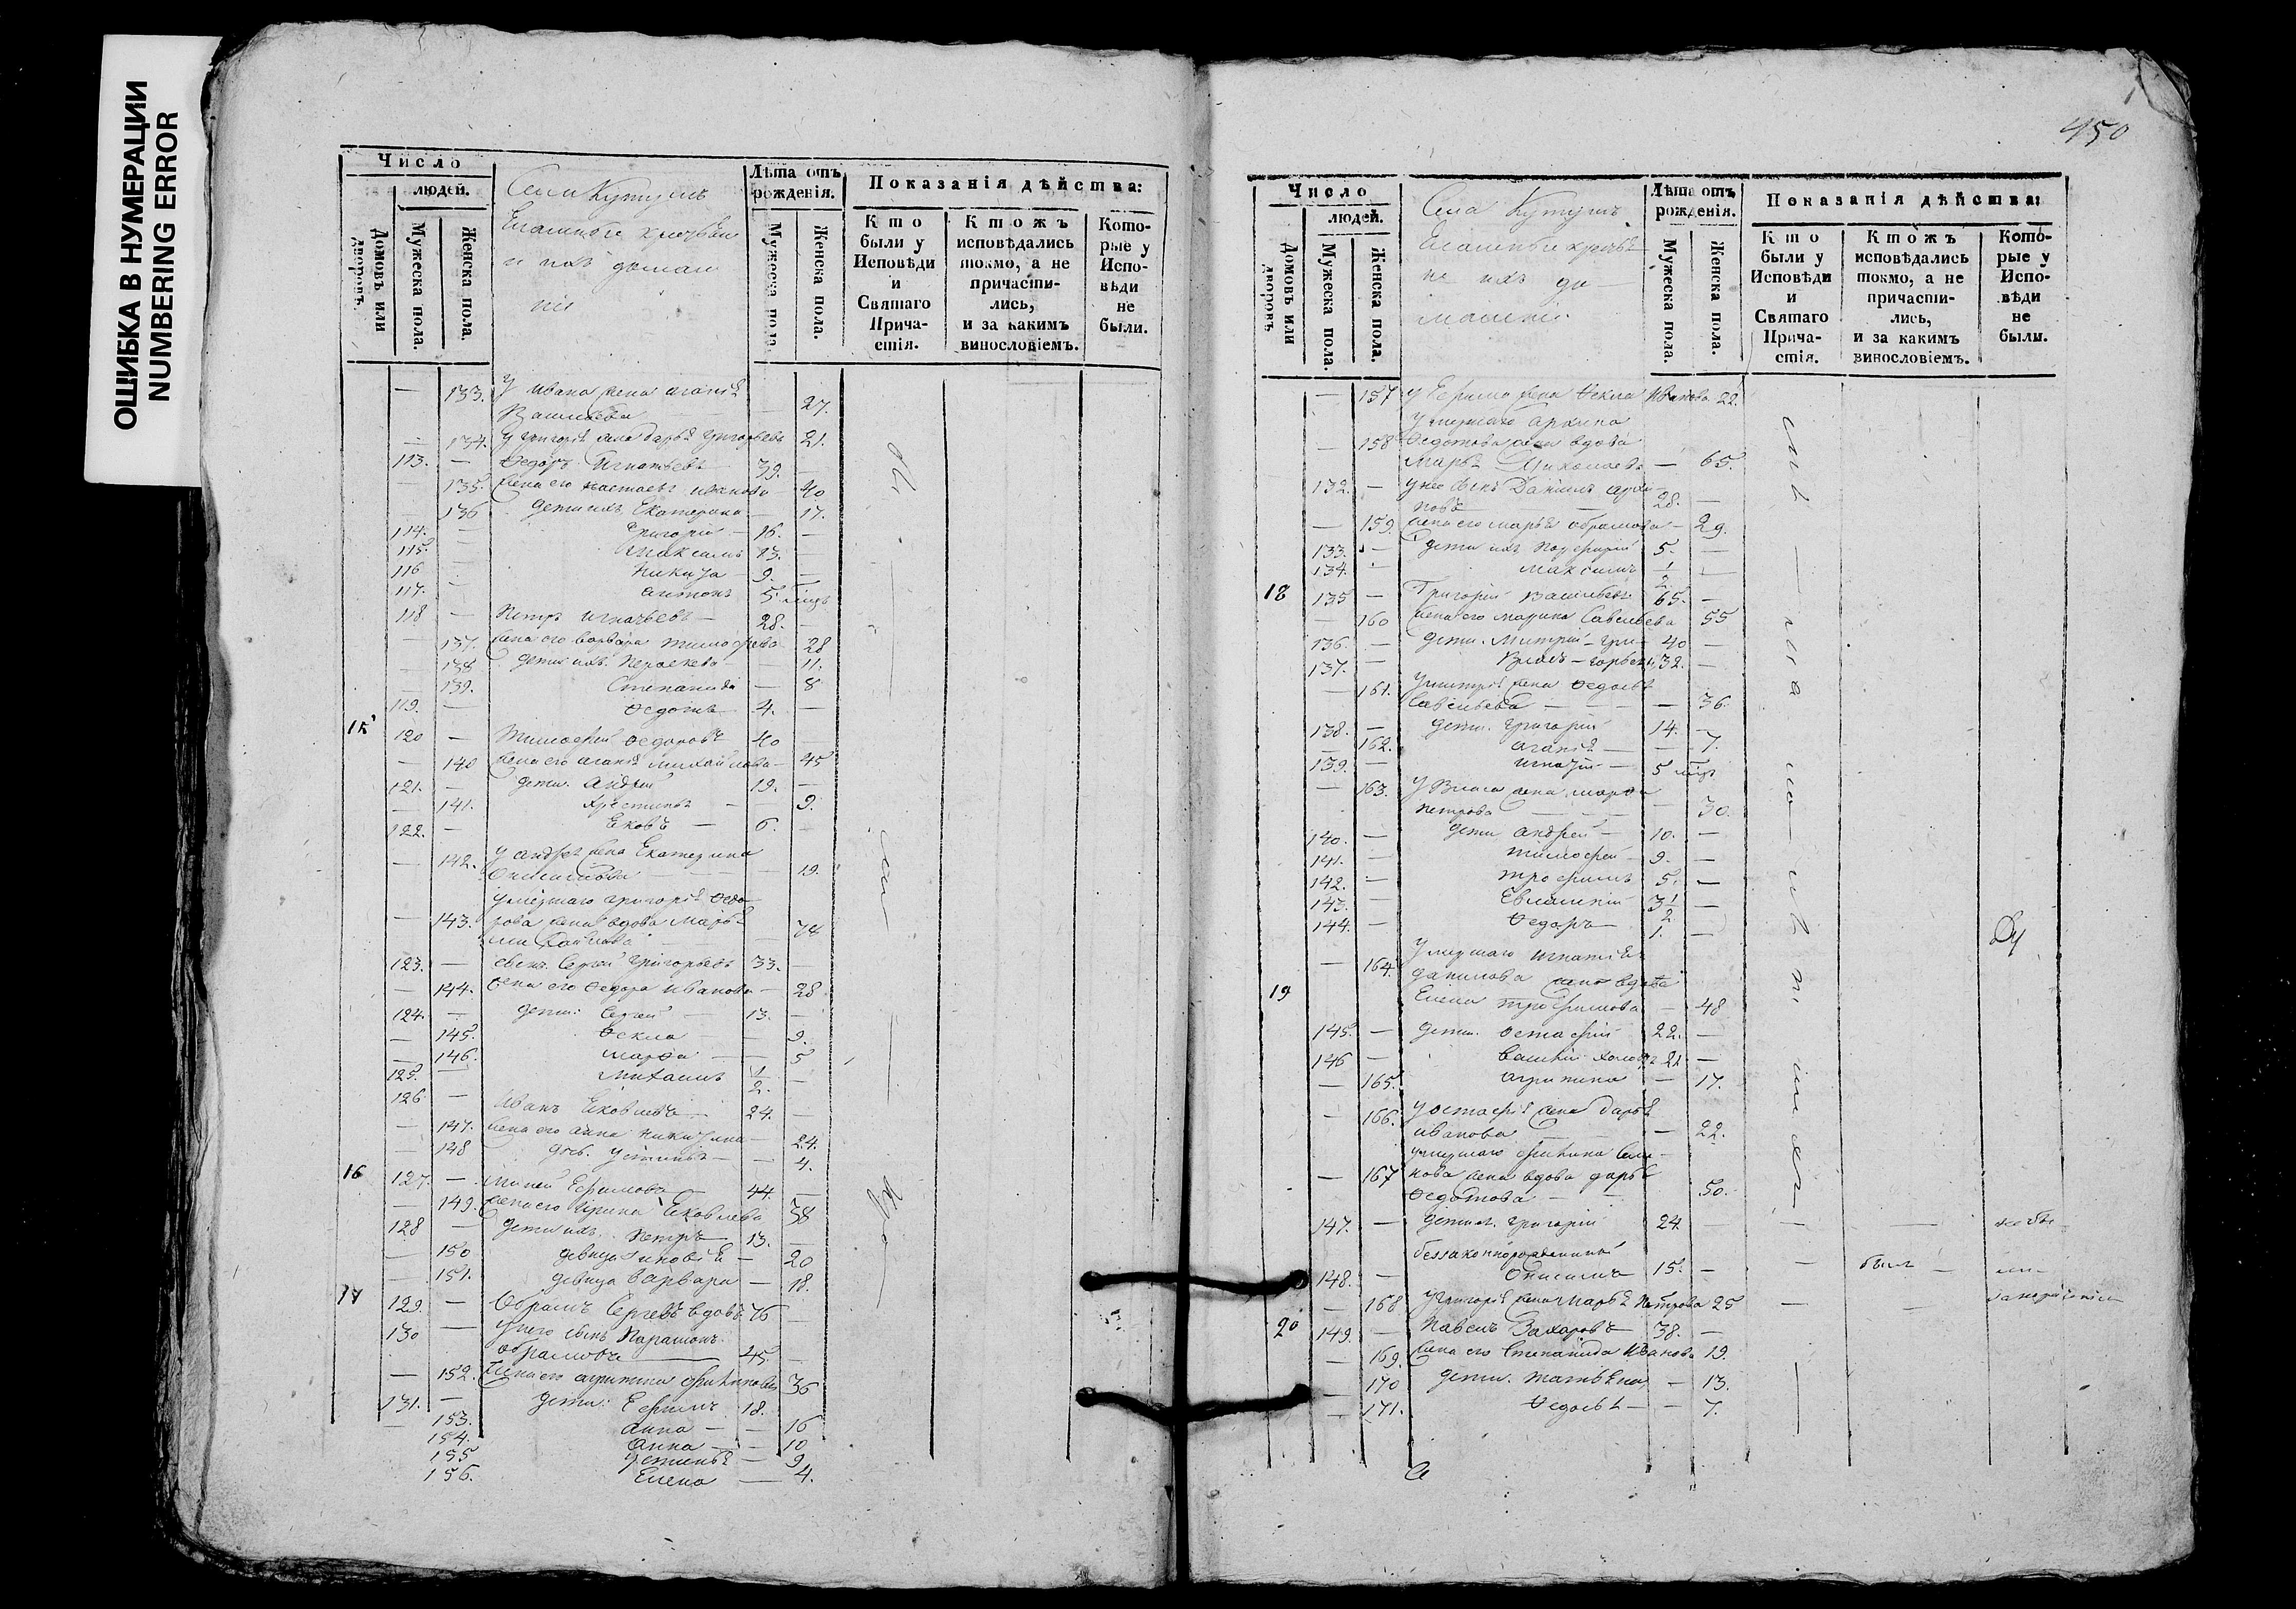 ОШИБКА В НУМЕРАЦИИ
NUMBERING ERROR
450
Число
людей.
Домовъ или дворовъ.
Мужеска пола.
Женска пола.
Села
и ихъ домаш
ніе
Лѣта отъ рожденія.
Мужеска пола.
Женска пола.
Показанія дѣйства:
Кто были у Исповѣди и Святаго Прича-стія.
Ктожъ исповѣдались токмо, а не причасти-лись, и за какимъ винословіемъ.
Кото-рые у Испо-вѣди не были.
— 133. У Ивана жена Агапія
— 27.
— 134. У Григорія жена Дарья Григорьева 21.
113. — Ѳедоръ Игнатьевъ 39. —
— 135. жена его Настасья Иванова 40
— 136 дети ихъ Екатерина — 17.
114. — Григорій — 16. —
115. — Максимъ 13. —
116 — Никита — 9. —
117. — Антонъ 5 мцъ
118 — Петръ Игнатьевъ — 28. —
— 137. жена его Варвара Тимофеева 28
— 138 дети ихъ Пераскева — 11.
— 139. Степанида — 8
119. — Ѳедотъ 4. —
15 120 — Тимофей Ѳедоровъ 40 —
— 140 жена его Агапія Михайлова — 45
121. — дети. Андрей 19. —
— 141. Хрестинья — 9.
122. — Ековъ — 6. —
— 142. У Андрея жена Екатерина
— 19.
умершаго Григорія Ѳедо
— 143. рова жена вдова Марья
— 74
123. — сынъ Сергей Григорьевъ 33. —
— 144. жена его Ѳедора Иванова — 28
124. — дети: Сергей — 13. —
— 145. Ѳекла — 9.
— 146. Марѳа — 5
125. — 1/2. —
126 — Иванъ Ековлевъ — 24. —
— 147. жена его Анна Никитина — 24.
— 148 дочь. Устинья — 4.
16 127. — Ефимовъ — 44. —
— 149. жена его Ирина Ековлева 38
128 — дети ихъ. Петръ — 13. —
— 150 девица Зиновія — 20
— 151. девица Варвара — 18.
17 129. — Обрамъ Сергевъ вдовъ 76 —
130 — у него сынъ Парамонъ
Обрамовъ 45. —
— 152. жена его Агрипина 36
131. — дети: Ефимъ 18. —
153. Анна — 16
154. Анна — 10
155 Устинья — 9
156. Елена — 4.
Число
людей.
Домовъ или дворовъ.
Мужеска пола.
Женска пола.
Села
ихъ до-
машніе.
Лѣта отъ рожденія.
Мужеска пола.
Женска пола.
Показанія дѣйства:
Кто были у Исповѣди и Святаго Прича-стія.
Ктожъ исповѣдались токмо, а не причасти-лись, и за какимъ винословіемъ.
Кото-рые у Испо-вѣди не были.
— 157 У Ефима жена Ѳекла Иванова 22.
Умершаго Архипа
— 158 Ѳедотова жена вдова
Марья Николаева — 65.
132. — у нее сынъ Даніилъ Архи-
повъ 28. —
— 159. жена его Марья Обрамова — 29.
133. — дети ихъ Порфирій 5. —
134. — Максимъ 1/2 —
18 135 — Григорій Васильевъ 65. —
— 160 жена его Марина Савельева 55
136. — дети. Митрій Гри- 40 —
137. — Власъ — горьевы 32. —
— 161. У Митрія жена Ѳедосья
Савельева — 36.
138. — дети. Григорій 14. —
— 162. Агапія — 7.
139. — Игнатій — 5 мцъ
— 163. У Власа жена Марѳа
Петрова — 30.
140. — дети Андрей — 10. —
141. — Тимофей — 9. —
142. — Трофимъ 5. —
143. — Евлампій 3 1/2 —
144. — Ѳедоръ 1. —
Умершаго Игнатія
19 — 164. Данилова жена вдова
Елена Трофимова — 48
145. — дети. Остафій 22. —
146 — Василій 21 —
— 165. Агрипина — 17.
— 166. У Остафія жена Дарья
Иванова — 22.
умершаго Семе-
— 167 нова жена вдова Дарья
Ѳедотова — 50.
147. — Григорій 24. —
беззаконнорожденный
148. — Онисимъ 15. —
— 168 У Григорія жена Марья Петрова 25
20 149. — Павелъ Захаровъ 38. —
— 169. жена его Степанида Иванова 19.
— 170 дети. — 13.
— 171. Ѳедосья — 7.